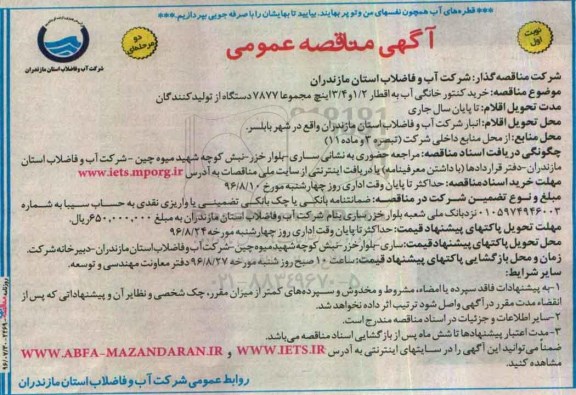 *** قطره‌های آب همچون نفسهای من و تو پر بهایند. بیایید تا بهایشان را با صرفه جویی بپردازیم. ***
نوبت اول
آگهی مناقصه عمومی
دو مرحله‌ای
شرکت آب و فاضلاب استان مازندران
شرکت مناقصه گذار: شرکت آب و فاضلاب استان مازندران
موضوع مناقصه: خرید کنتور خانگی آب به اقطار ۱/۲ و ۳/۴ اینچ مجموعا ۷۸۷۷ دستگاه از تولیدکنندگان
مدت تحویل اقلام: تا پایان سال جاری
محل تحویل اقلام: انبار شرکت آب و فاضلاب استان مازندران واقع در شهر بابلسر.
محل منابع: از محل منابع داخلی شرکت (تبصره ۳ و ماده ۱۱)
چگونگی دریافت اسناد مناقصه: مراجعه حضوری به نشانی ساری-بلوار خزر-نبش کوچه شهید میوه چین - شرکت آب و فاضلاب استان
مازندران-دفتر قراردادها (با داشتن معرفینامه) یا دریافت اینترنتی از سایت ملی مناقصات به آدرس www.iets.mporg.ir
مهلت خرید اسناد مناقصه: حداکثر تا پایان وقت اداری روز چهارشنبه مورخ ۹۶/۸/۱۰
مبلغ و نوع تضمین شرکت در مناقصه: ضمانتنامه بانکی یا چک بانکی تضمینی یا واریزی نقدی به حساب سیبا به شماره
۰۱۰۵۹۷۴۹۴۶۰۰۳ نزد بانک ملی شعبه بلوار خزر ساری بنام شرکت آب و فاضلاب استان مازندران به مبلغ ۶۵۰,۰۰۰,۰۰۰ ریال.
مهلت تحویل پاکتهای پیشنهاد قیمت: حداکثر تا پایان وقت اداری روز چهارشنبه مورخه ۹۶/۸/۲۴
محل تحویل پاکتهای پیشنهاد قیمت: ساری-بلوار خزر-نبش کوچه شهید میوه چین-شرکت آب و فاضلاب استان مازندران-دبیرخانه شرکت.
زمان و محل بازگشایی پاکتهای پیشنهاد قیمت: ساعت ۱۰ صبح روز شنبه مورخه ۹۶/۸/۲۷ دفتر معاونت مهندسی و توسعه.
سایر شرایط:
۱- به پیشنهادات فاقد سپرده یا امضاء، مشروط و مخدوش و سپرده‌های کمتر از میزان مقرر، چک شخصی و نظایر آن و پیشنهاداتی که پس از
انقضاء مدت مقرر در آگهی واصل شود ترتیب اثر داده نخواهد شد.
۲- سایر اطلاعات و جزئیات در اسناد مناقصه مندرج است.
۳- مدت اعتبار پیشنهادها تا شش ماه پس از بازگشایی اسناد مناقصه می‌باشد.
ضمناً می‌توانید این آگهی را در سایتهای اینترنتی به آدرس WWW.IETS.IR و WWW.ABFA-MAZANDARAN.IR
مشاهده کنید.
روابط عمومی شرکت آب و فاضلاب استان مازندران